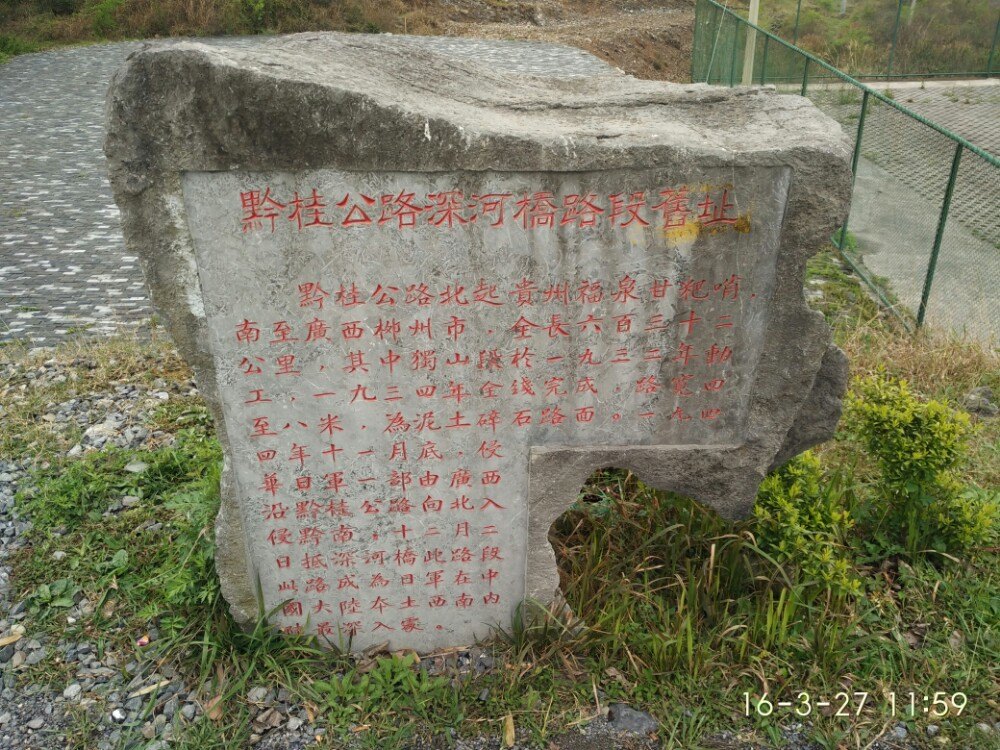 黔桂公路深河橋路段舊址
黔桂公路北起貴州福泉甘粑哨,
南至廣西柳州市,全長六百三十二
公里,其中獨山段於一九三三年動
工,一九三四年全綫完成,路寬四
至八米,為泥土碎石路面。一九四
四年十一月底,侵
華日軍一部由廣西
沿黔桂公路向北入
侵黔南,十二月二
日抵深河橋此路段
此路成為日軍在中
國大陸本土西南内
陸最深入處。
16-3-27 11:59